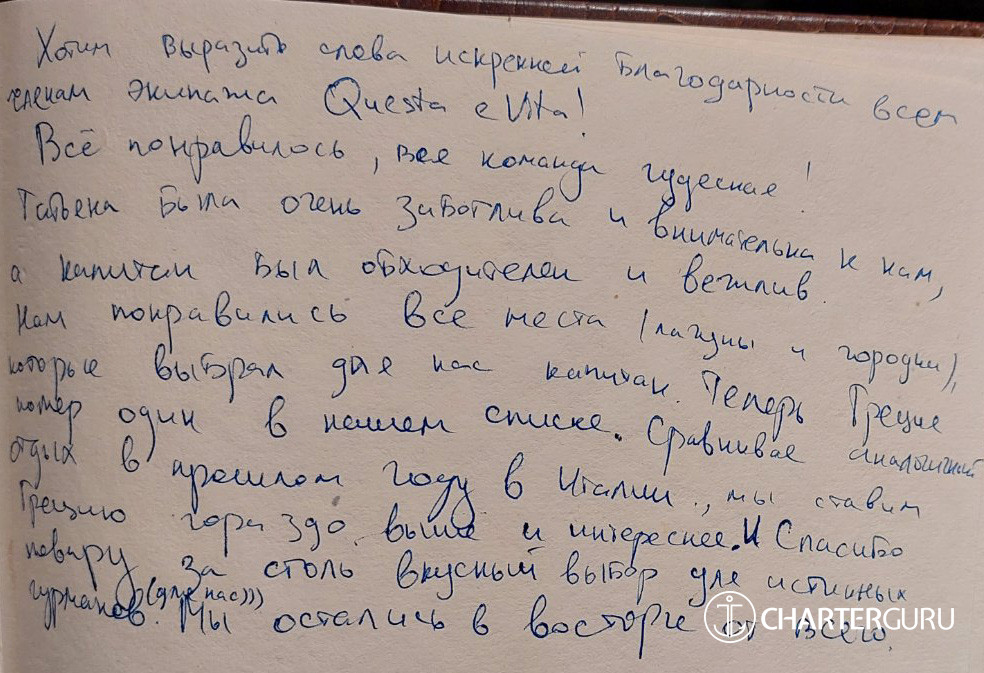 Хотим выразить слова искренней благодарности всем
членам экипажа Questa e Vita!
Всё понравилось, вся команда чудесная!
Татьяна была очень заботлива и внимательна к нам,
а капитан был обходителен и вежлив.
Нам понравились все места (лагуны и городки),
которые выбрал для нас капитан. Теперь Греция
номер один в нашем списке. Сравнивая аналогичный
отдых в прошлом году в Италии, мы ставим
Грецию гораздо выше и интереснее. И Спасибо
повару за столь вкусный выбор для истинных
гурманов. (для нас))) Мы остались в восторге от всего.
CHARTERGURU